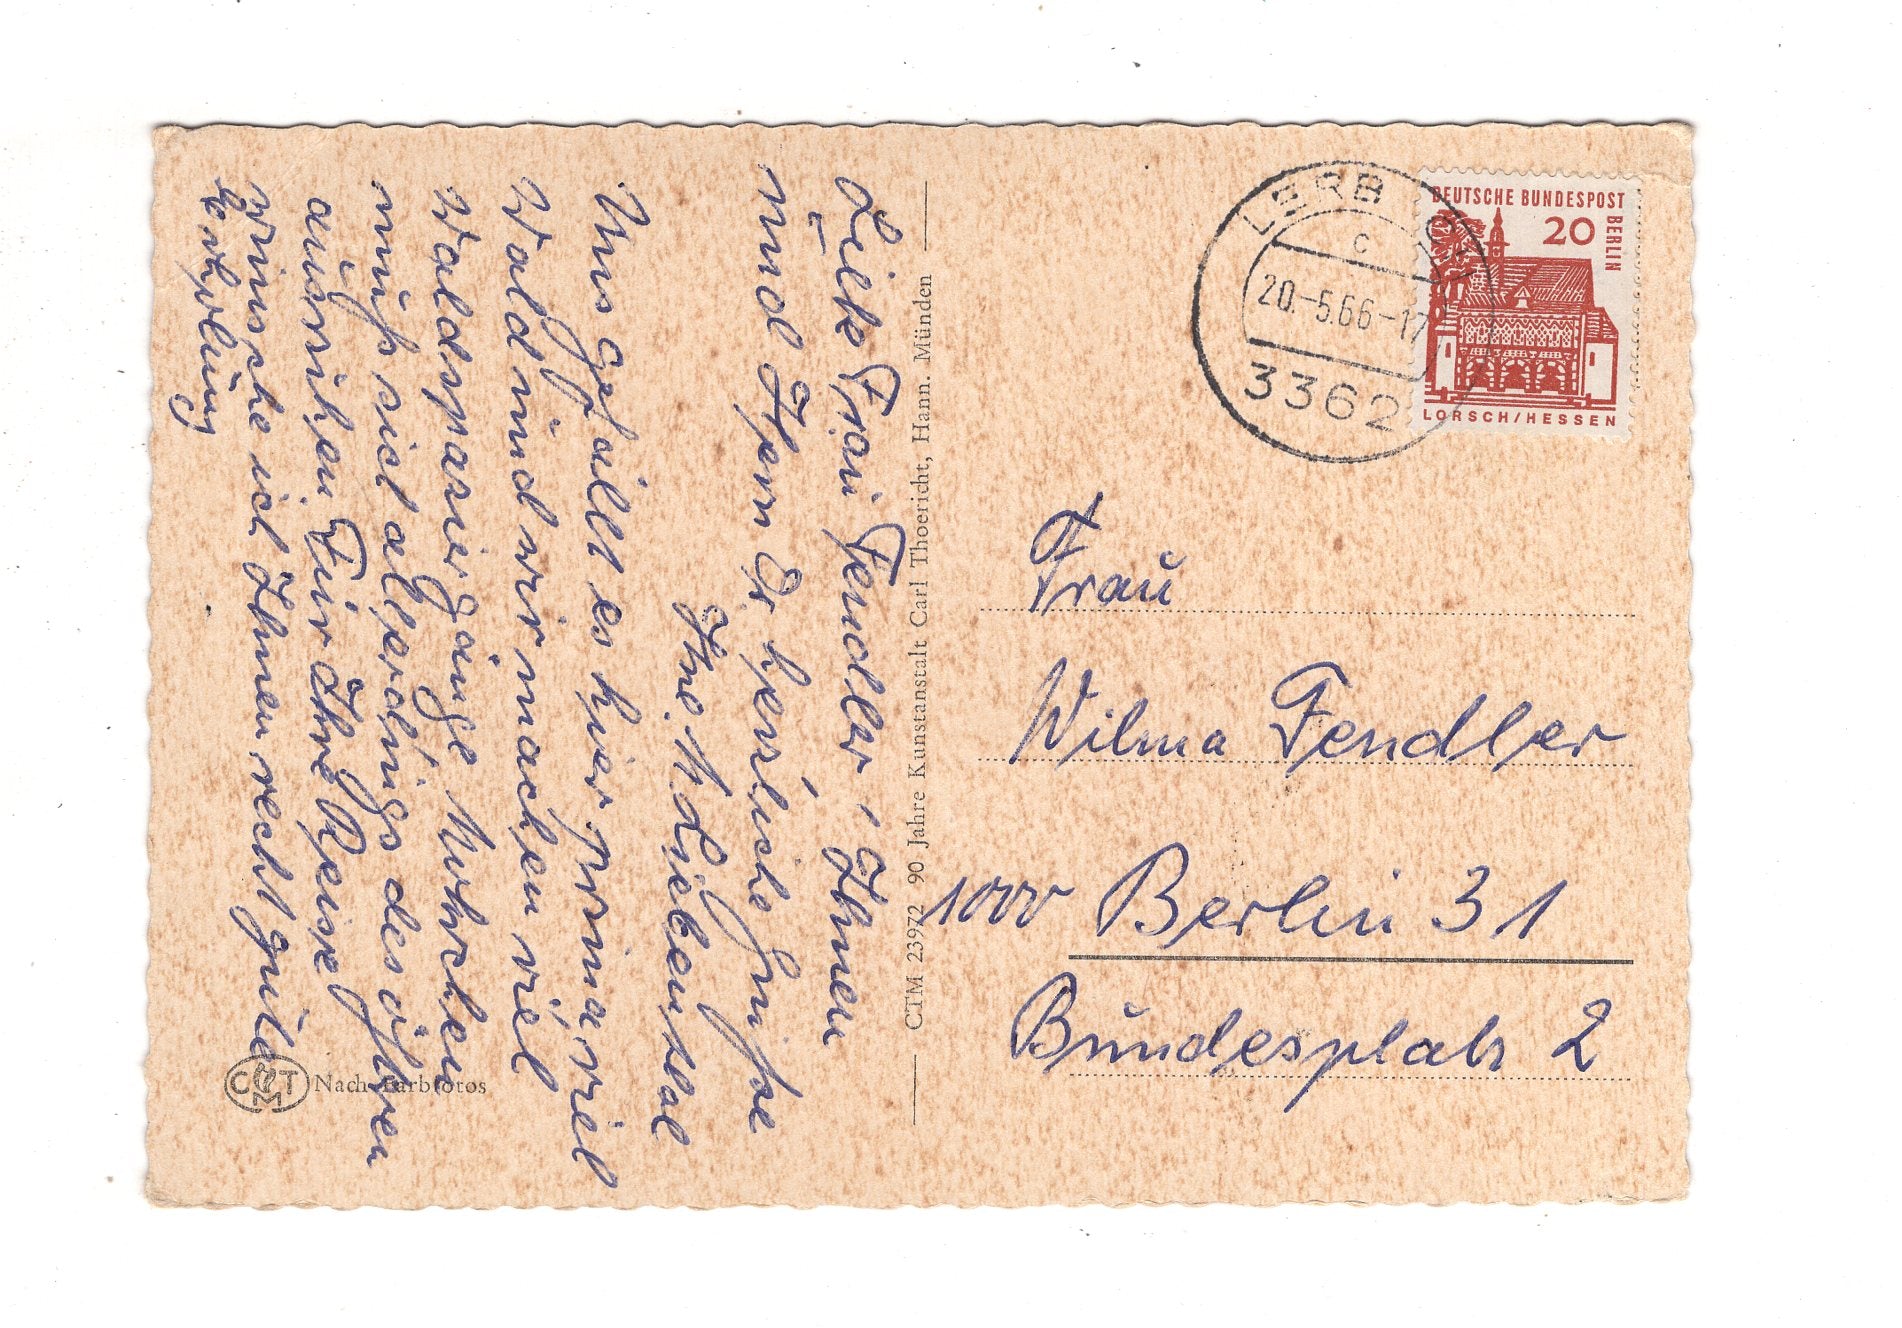 Liebe Frau Fendler, Ihnen
und Herrn Dr herzliche Grüße
Ihre
Uns gefällt es hier prima, viel
Wald und wir machen viel
Waldspaziergänge
muß sich allerdings des öfteren
ausruhen. Für Ihre Reise
wünsche ich Ihnen recht gute
Erholung
CTM 23972 90 Jahre Kunstanstalt Carl Thoericht, Hann. Münden
CTM Nach Farbfotos
LERBACH
c
20.-5.66-17
3362
DEUTSCHE BUNDESPOST
BERLIN
20
LORSCH/HESSEN
Frau
Wilma Fendler
1000 Berlin 31
Bundesplatz 2